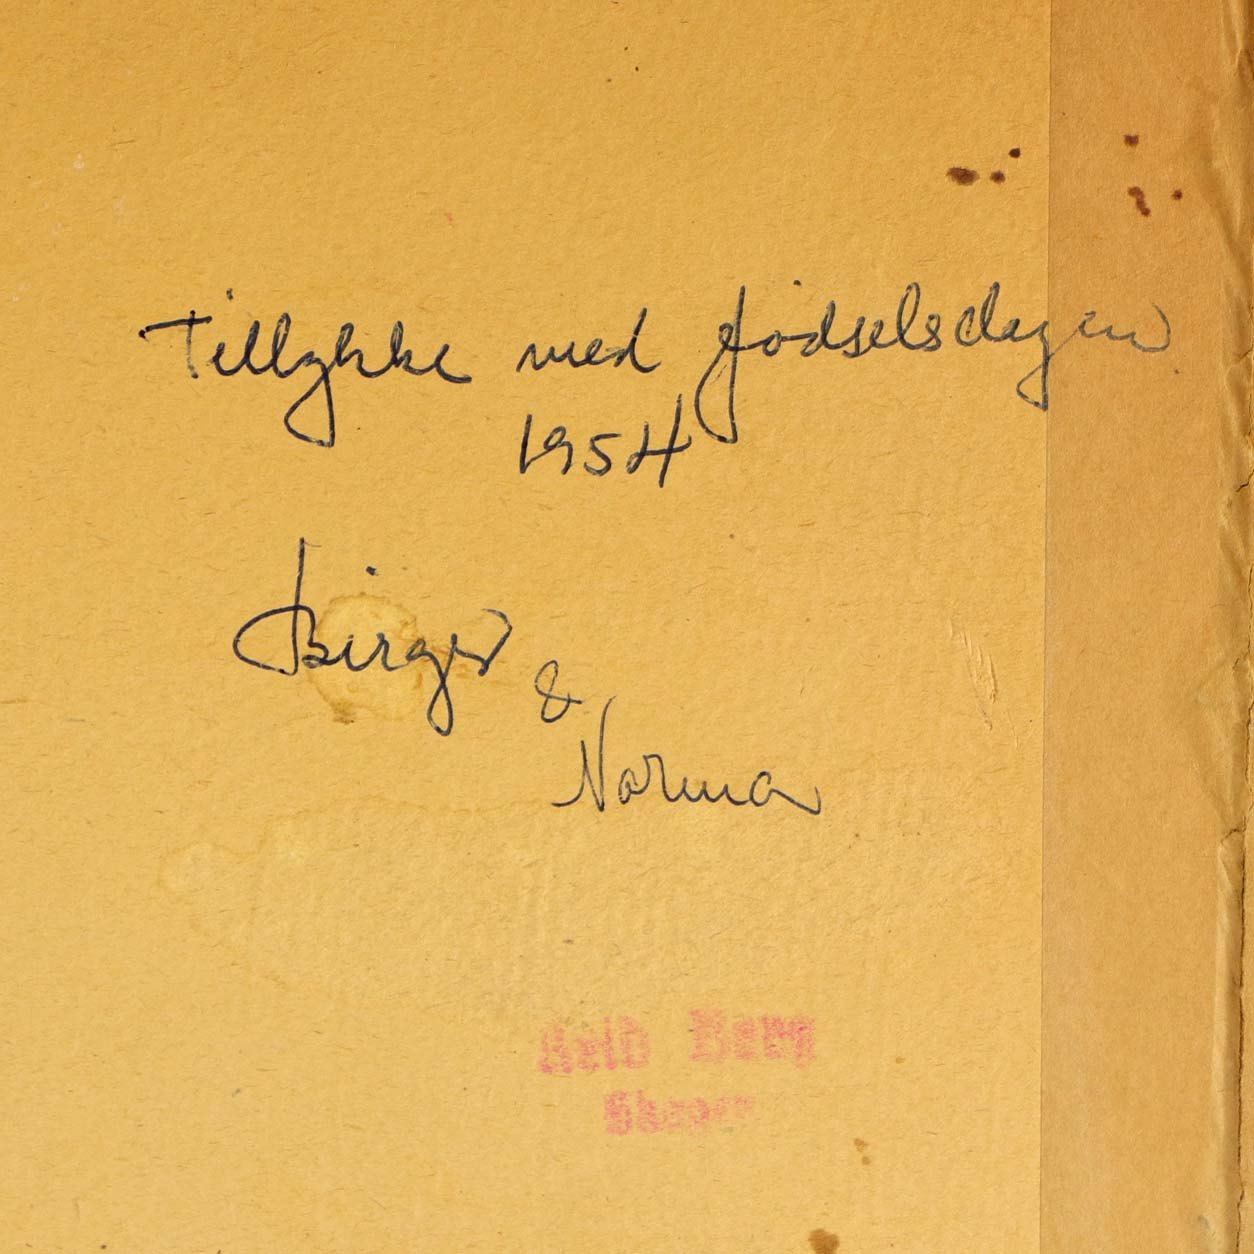 Tillykke med fødselsdagen
1954
Birger
&
Norma
Berg
Skagen